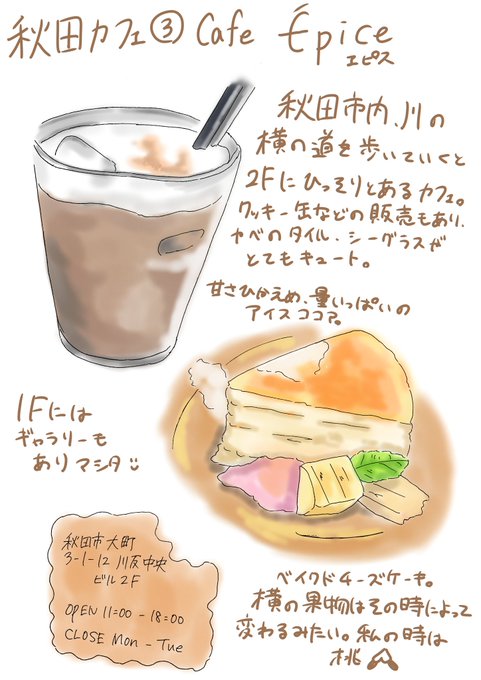 秋田カフェ③ Cafe Épice
エピス
秋田市内、川の
横の道を歩いていくと
2Fにひっそりとあるカフェ。
クッキー缶などの販売もあり、
カベのタイル、シーグラスが
とてもキュート。
甘さひかえめ、量いっぱいの
アイスココア。
1Fには
ギャラリーも
ありマシタ
秋田市大町
3-1-12 川反中央
ビル2F
OPEN 11:00 - 18:00
CLOSE Mon - Tue
ベイクドチーズケーキ。
横の果物はその時によって
変わるみたい。私の時は
桃